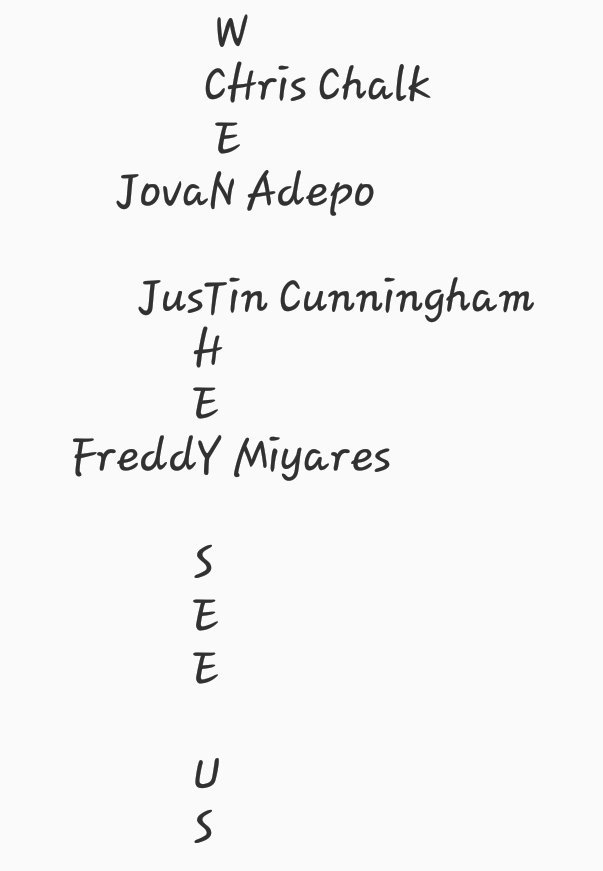 W
CHris Chalk
E
JovaN Adepo
JusTin Cunningham
H
E
FreddY Miyares
S
E
E
U
S